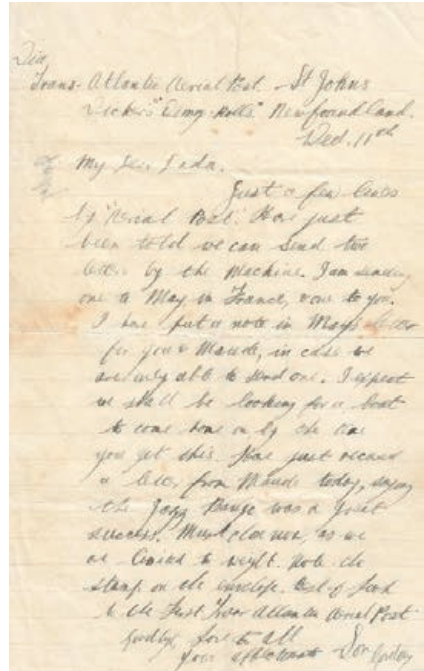 Via
Trans-Atlantic Aerial Post. St Johns
Vickers "Vimy-Rolls" Newfoundland.
Wed. 11th
My Dear Lada.
Just a few lines
by "Aerial Post". Have just
been told we can send two
letters by the Machine. I am sending
one to May in France, & one to you.
I have put a note in May's letter
for you & Maude, in case we
are only able to send one. I expect
we shall be looking for a boat
to come home on by the time
you get this. Have just received
a letter from Maude today, saying
the Jazz was a great
success. Must close now, as we
are limited to weight. Note the
stamp on the envelope. Best of luck
to the First Trans Atlantic Aerial Post
Goodbye, love to all
Your affectionate